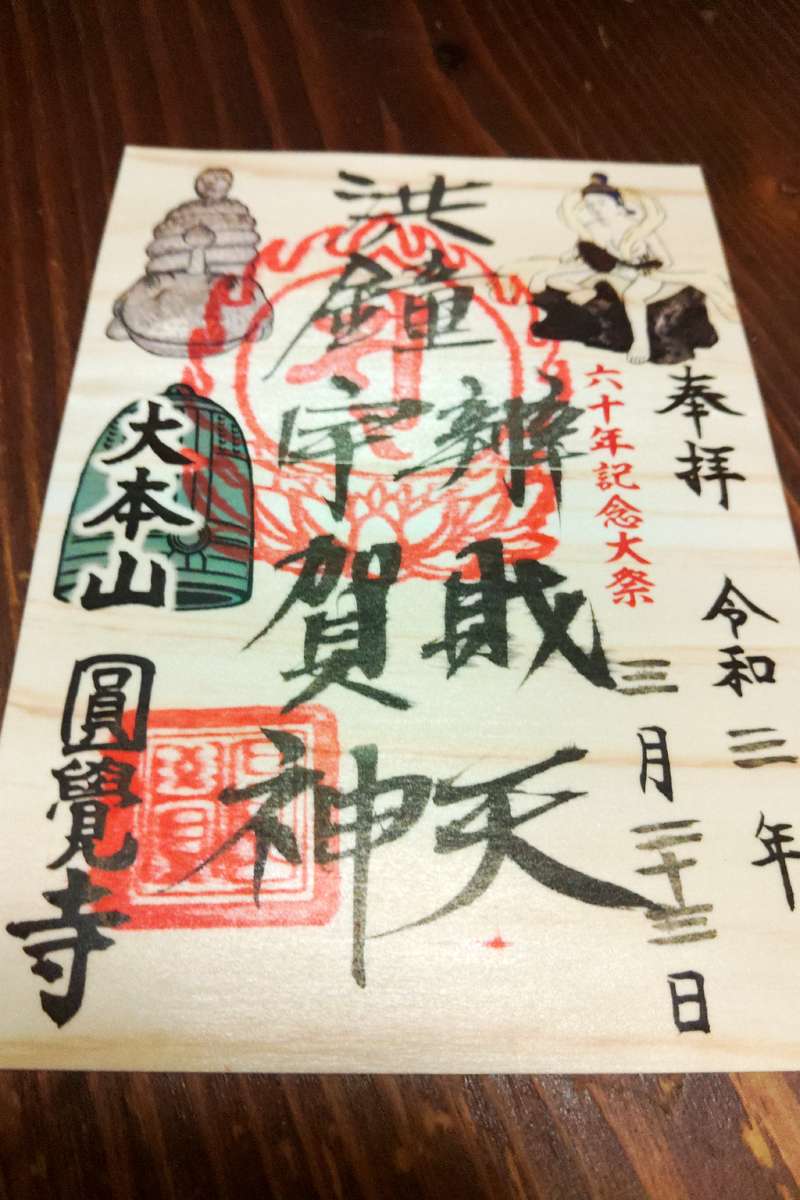 奉拝
令和三年
三月二十三日
六十年記念大祭
洪鐘
辨財天
宇賀神
大本山
圓覺寺